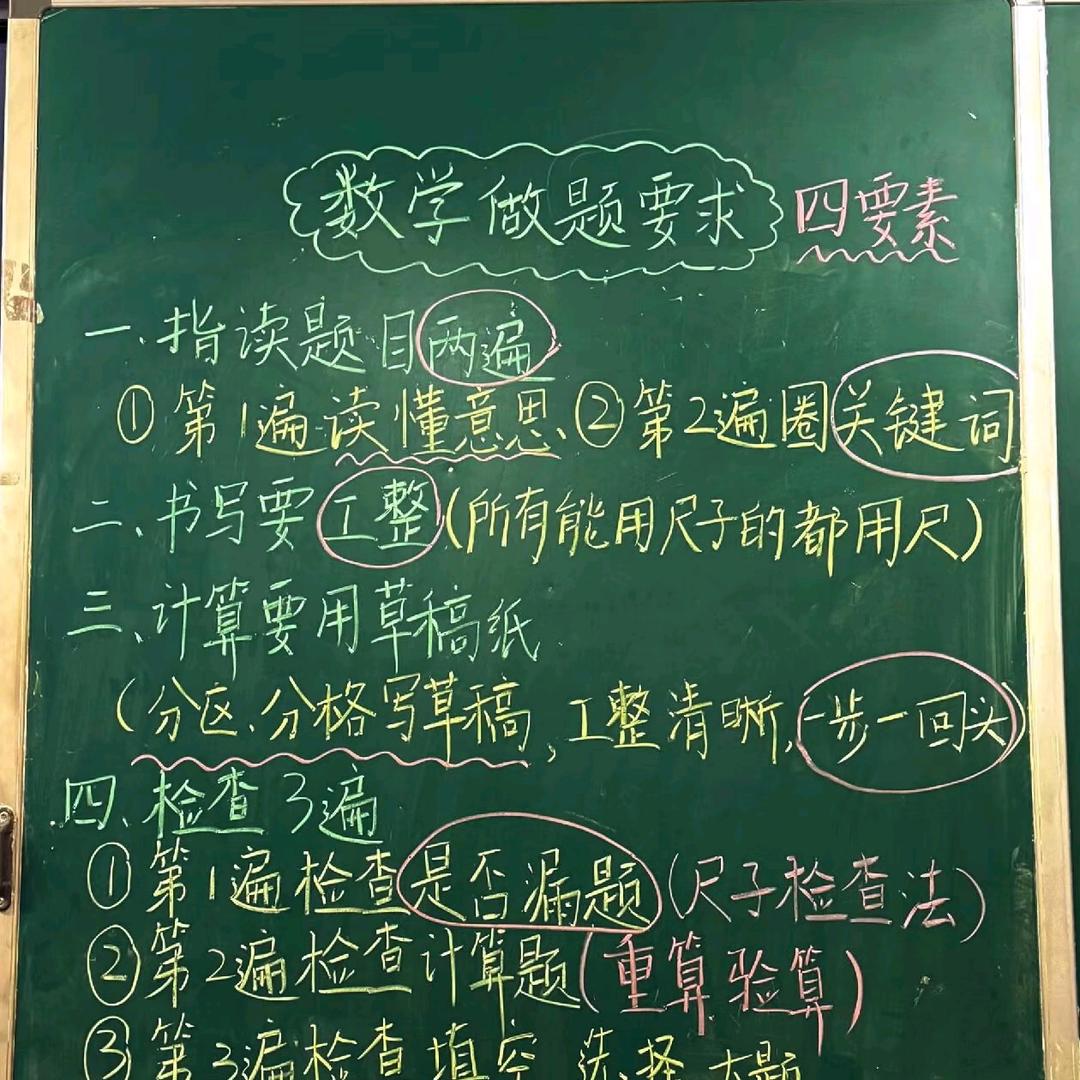 数学做题要求 四要素
一、指读题目两遍
①第1遍读懂意思、②第2遍圈关键词
二、书写要工整(所有能用尺子的都用尺)
三、计算要用草稿纸
(分区、分格写草稿,工整清晰,一步一回头)
四、检查3遍
①第1遍检查是否漏题(尺子检查法)
②第2遍检查计算题(重算验算)
③第3遍检查填空、选择、大题